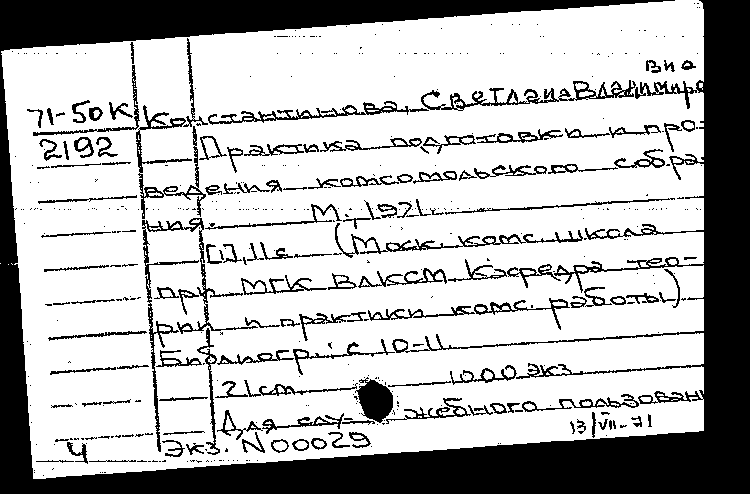 вна
71-50К Константинова, Светлана Владимиро
2192 Практика подготовки и про-
ведения комсомольского собра-
ния. М., 1971.
[1], 11 с. (Моск. комс. школа
при МГК ВЛКСМ. Кафедра тео-
рии и практики комс. работы)
Библиогр.: с. 10-11.
21 см. 1000 экз.
Для слу- жебного пользован
Ч Экз. N 00029 13/VII-71